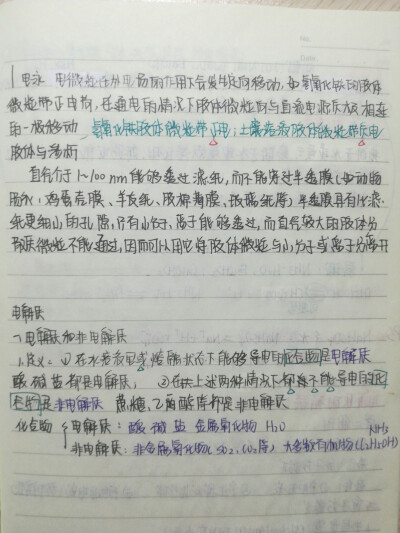 电泳 电微粒在外电场的作用下会发生定向移动,如氢氧化铁的胶体
微粒带正电荷,在通电的情况下胶体微粒向与直流电源负极相连
的一极移动 氢氧化铁胶体微粒带正电;土壤 胶体微粒带负电
胶体与渗析
直径介于1~100nm能够透过滤纸,而不能穿过半透膜(如动物
膀胱,鸡蛋壳膜、羊皮纸、胶棉薄膜、玻璃纸等)半透膜具有比滤
纸更细小的孔隙,只有小分子、离子能够透过,而直径较大的胶体分
散质微粒不能通过,因而可以用它将胶体微粒与小分子或离子分离开
电解质
电解质和非电解质
1、定义: ①在水溶液里或熔融状态下能够导电的化合物是电解质
酸 碱 盐都是电解质, ②在以上述两种情况下都不能导电的化
合物是非电解质 蔗糖,乙醇 都是非电解质
化合物 电解质: 酸 碱 盐 金属氧化物 H₂O
NH₃
非电解质: 非金属氧化物(SO₂,CO₂等) 大多数有机物(C₂H₅OH)